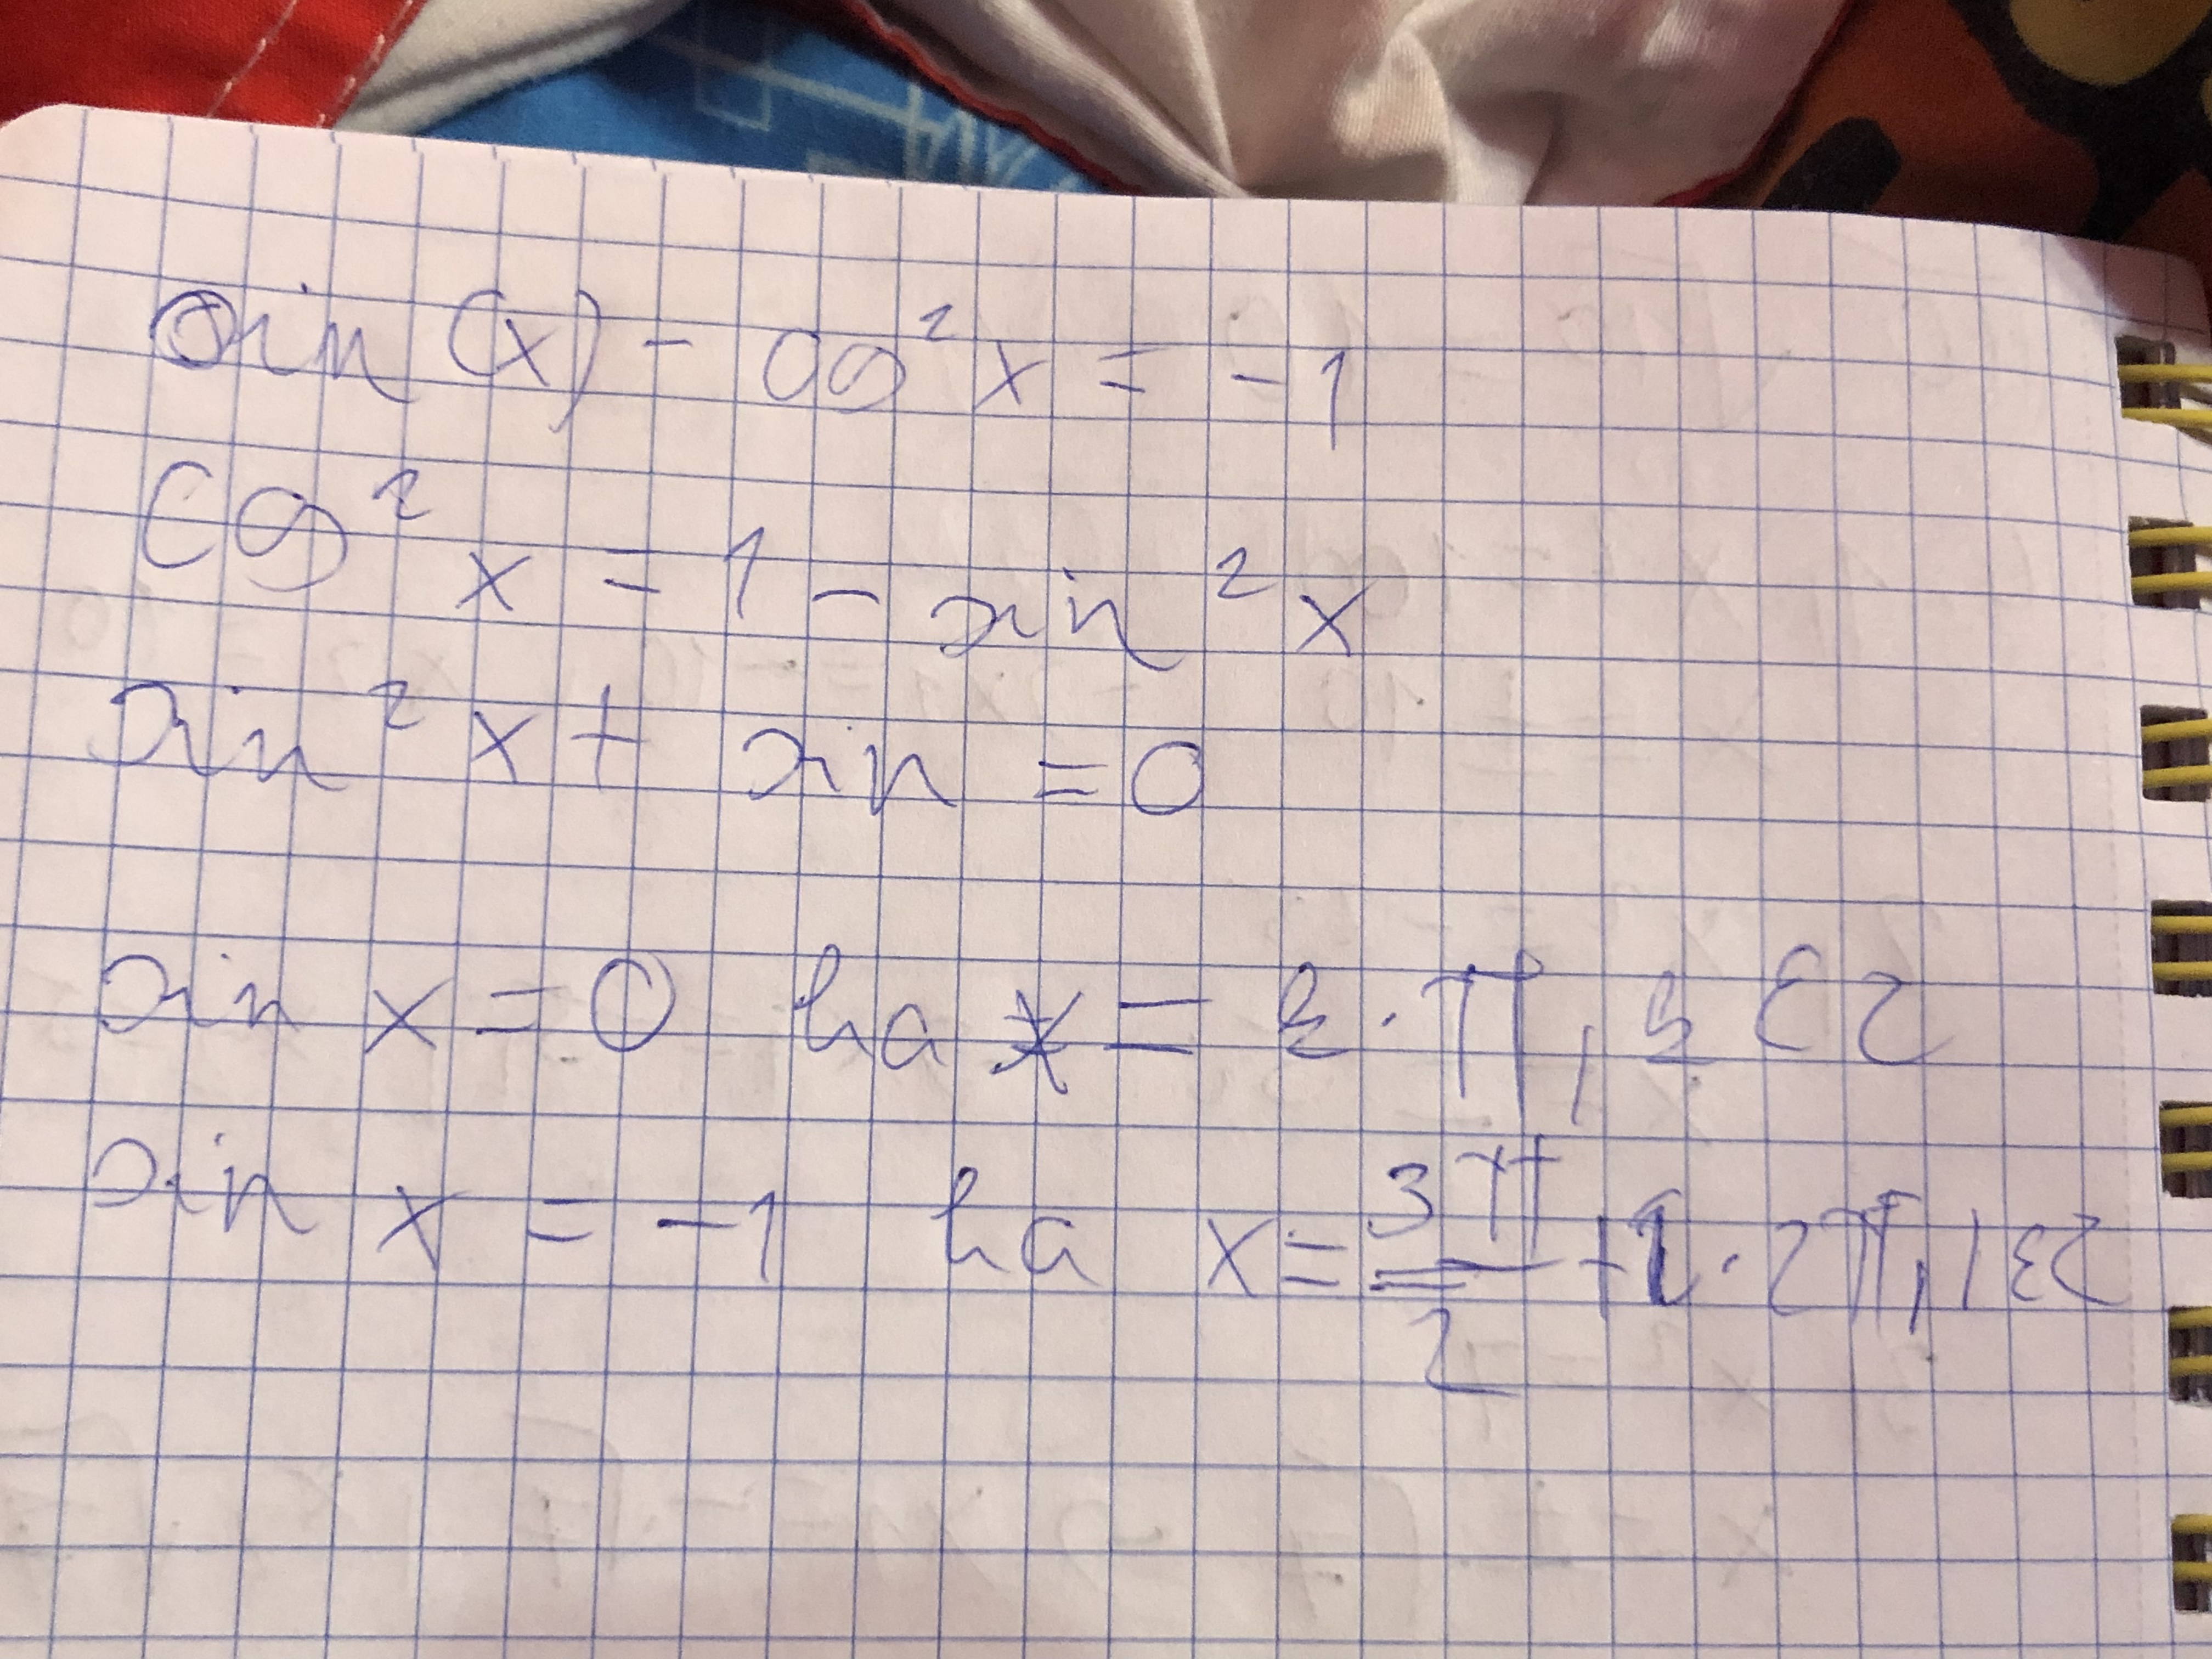 sin(x) - cos²x = -1
cos²x = 1 - sin²x
sin²x + sin = 0
sin x = 0 ha x = k·π, k ∈ Z
sin x = -1 ha x = 3π/2 + l·2π, l ∈ Z